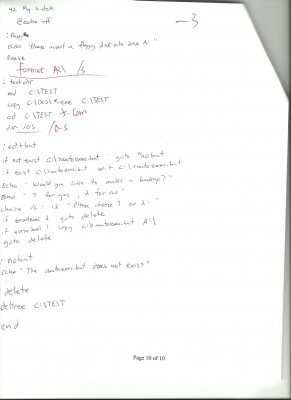 42. My batch
@echo off
-3
:floppy
ECHO "Please insert a floppy disk into drive A:"
Pause
format A:\ /s
:testdir
md C:\TEST
copy C:\DOS\*.exe C:\TEST
cd C:\TEST *.com
dir /OS /o-s
:editbat
if not exist C:\autoexec.bat goto nobat
if exist C:\autoexec.bat edit C:\autoexec.bat
Echo "Would you like to make a backup?"
Echo "1 for yes, 2 for no"
choice /c: 12 "Please choose 1 or 2:"
if errorlevel 2 goto delete
if errorlevel 1 copy c:\autoexec.bat A:\
goto delete
:nobat
Echo "The autoexec.bat does not exist"
:delete
deltree C:\TEST
end
Page 10 of 10